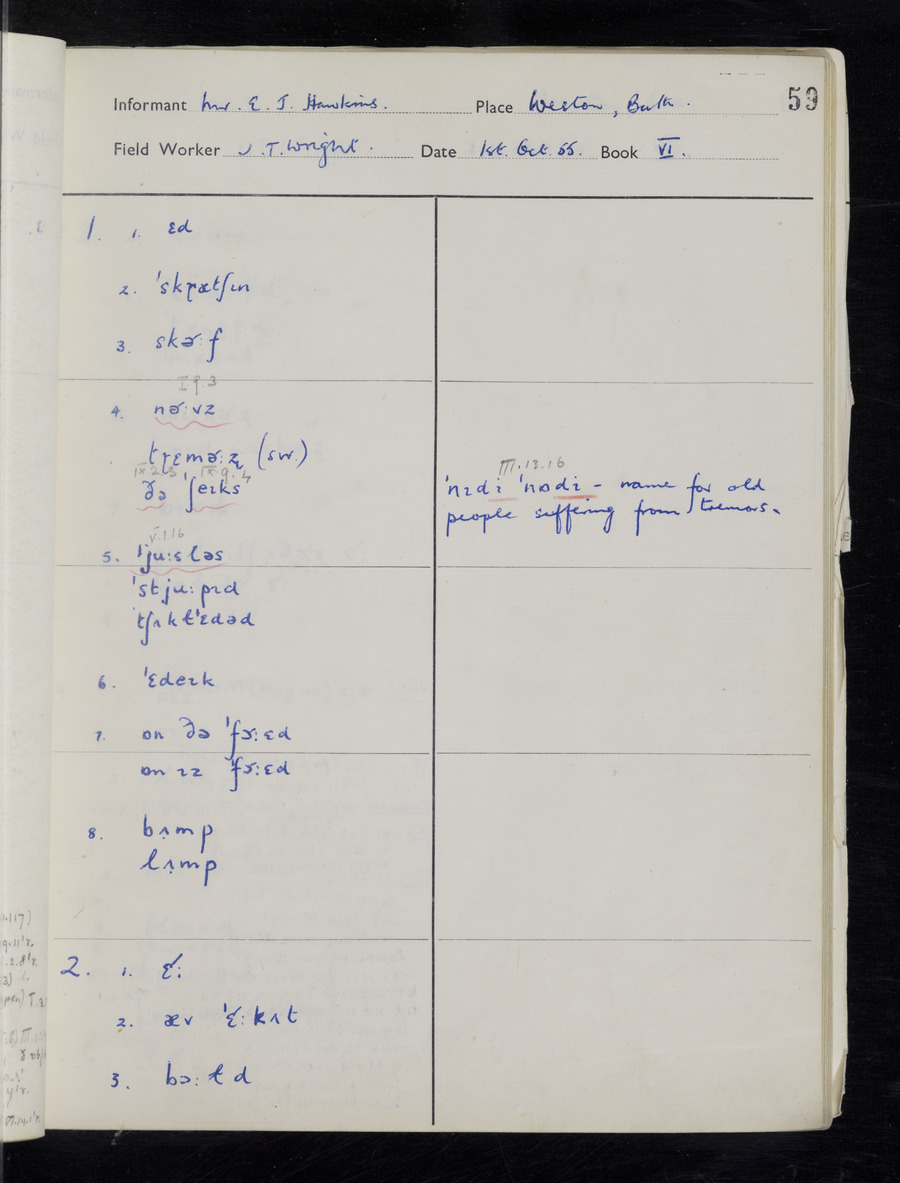 59
Informant Mr. E. J. Hawkins. Place Weston, Bath.
Field Worker J.T. Wright. Date 1st. Oct. 55. Book VI.
1. 1. ɛd
2. ˈskɽætʃɪn
3. skɚ:f
I 9.3
4. nɚ:vz
tɽɛmɚ:ʐ (sw.)
IX 2.3 IX.9.4
ðə ˈʃeɪks
III.13.16
ˈnɪdi ˈnɒdi - name for old
people suffering from tremors.
V.1.16
5. ˈju:sləs
ˈstju:pɪd
ˈtʃʌktˈɛdəd
6. ˈɛdeɪk
7. ɒn ðə ˈfɔ˞:ɛd
ɒn ɪz ˈfɔ˞:ɛd
8. bʌ̣mp
lʌ̣mp
2. 1. ɛ˞:
2. æv ˈɛ˞:kʌt
3. bɔ:ɫd